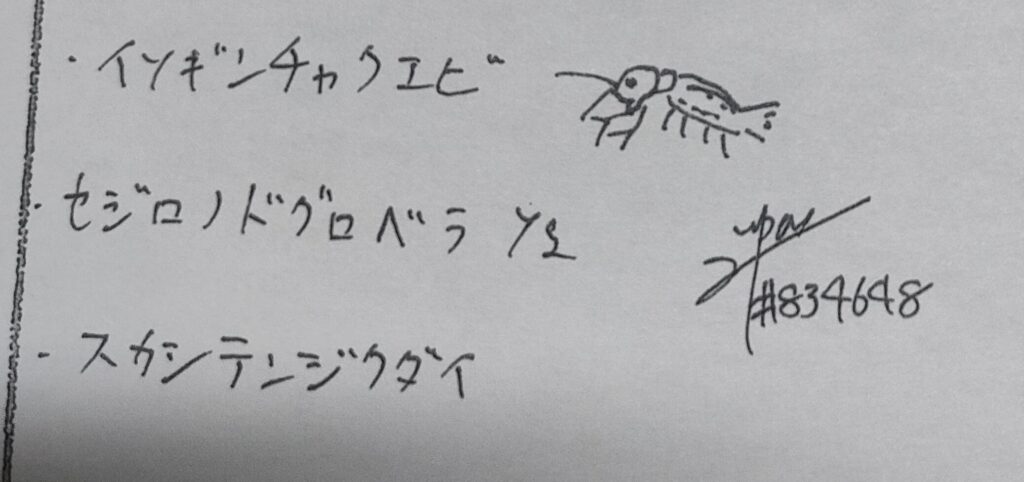 ・イソギンチャクエビ
・セジロノドグロベラ yg
#834648
・スカシテンジクダイ